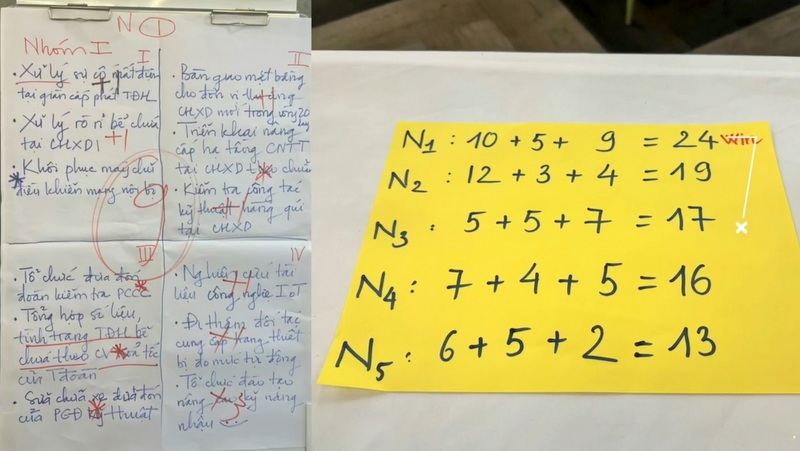 N 1
Nhóm I
I
• Xử lý sự cố mất điện
tại gian cấp phát TĐH
• Xử lý rò rỉ bể chứa
tại CHXD1
+1
• Khôi phục máy chủ
điều khiển mạng nội bộ
II
• Bàn giao mặt bằng
cho đơn vị thi công
CHXD mới trong vòng 20
ngày
• Triển khai nâng
cấp hạ tầng CNTT
tại CHXD chuẩn
• Kiểm tra công tác
kỹ thuật hàng quí
tại CHXD
III
• Tổ chức đưa đón
đoàn kiểm tra PCCC
• Tổng hợp số liệu,
tình trạng TĐH bể
chứa theo CV của
của Tđoàn
• Sửa chữa xe đưa đón
của PGĐ kỹ thuật
IV
• Nghiên cứu tài
liệu công nghệ IoT
• Đi thăm đối tác
cung cấp trang thiết
bị đo mức tự động
• Tổ chức đào tạo
nâng cao kỹ năng
nhậu
N1 : 10 + 5 + 9 = 24 win
N2 : 12 + 3 + 4 = 19
N3 : 5 + 5 + 7 = 17
N4 : 7 + 4 + 5 = 16
N5 : 6 + 5 + 2 = 13